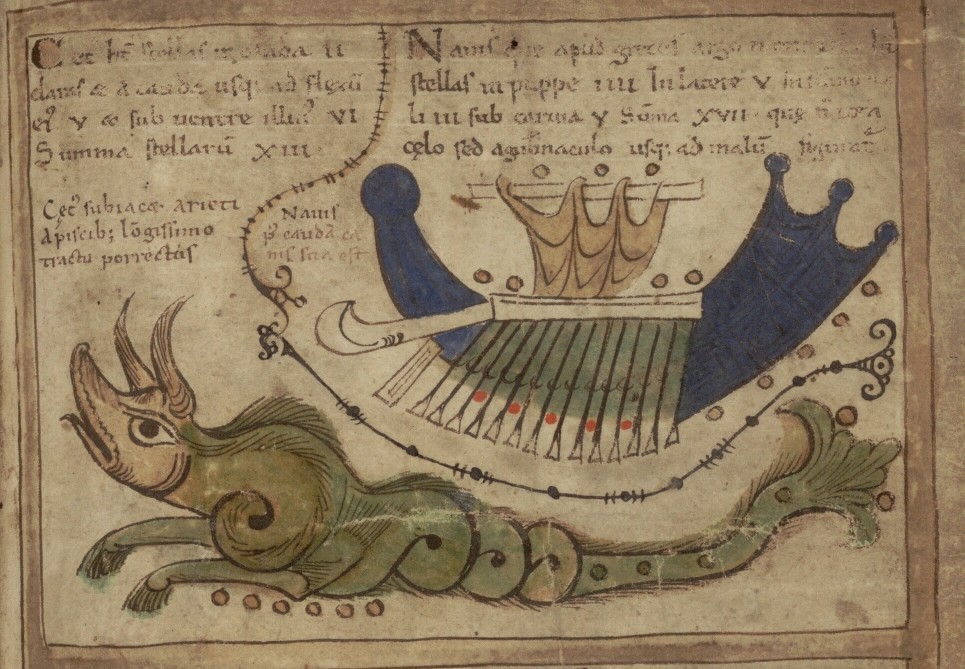 Cet' ht stellas in cauda ii
claras & a cauda usq; ad flexū
ei' v & sub uentre illi' vi
Summa stellarū xiii
Nauis que apud grecos argo
stellas in puppe iiii In latere v
li iii sub carina v Sūma xvii que n̄
cęlo sed agub̄naculo usq; ad malū figurat'
Cęt' subiac& arieti
& piscib; lōgissimo
tractu porrectus
Nauis
p' caudā ca
nis sita est